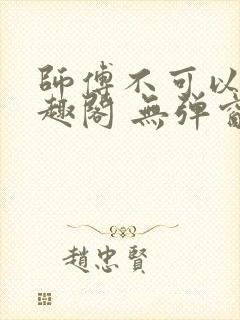 師傅不可以
趣閣 無彈窗
趙忠賢